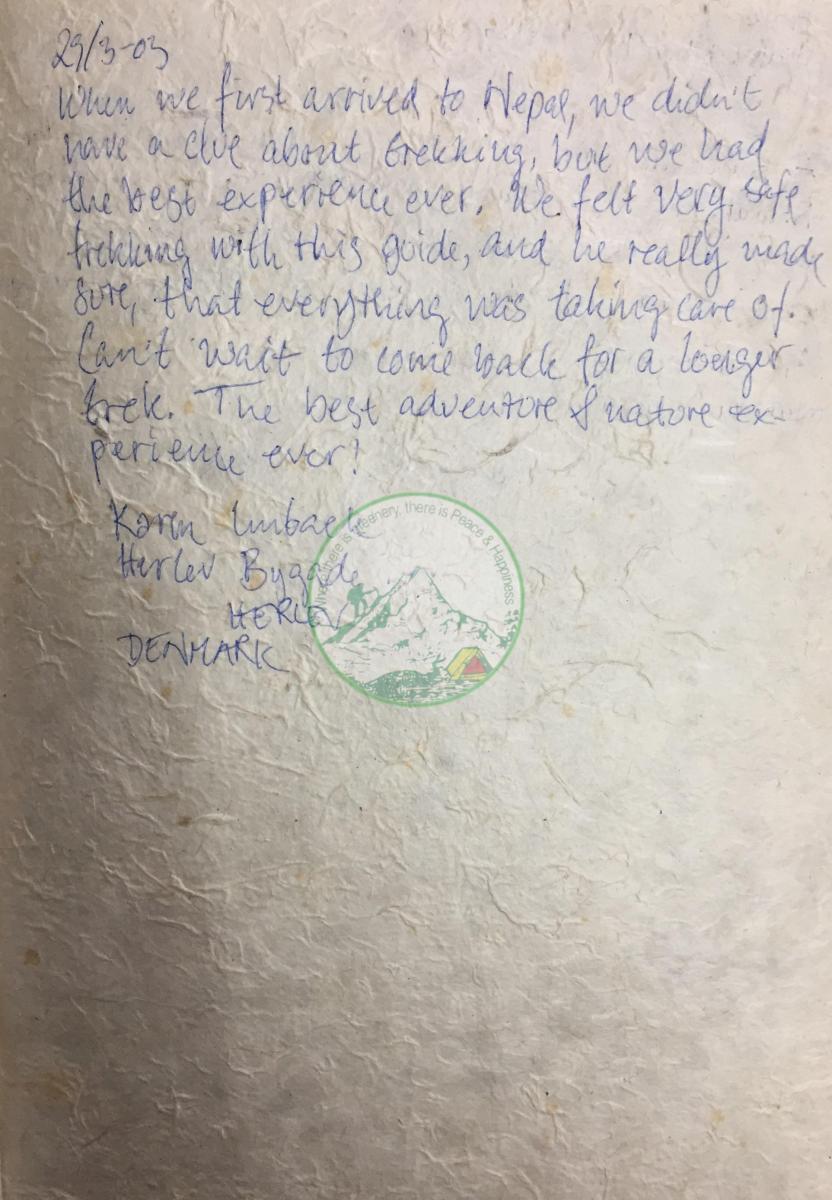 29/3-03
When we first arrived to Nepal, we didn't
have a clue about trekking, but we had
the best experience ever. We felt very safe
trekking with this guide, and he really made
sure, that everything was taking care of.
Can't wait to come back for a longer
trek. The best adventure & nature ex-
perience ever!
Karen
Herlev Bygade
HERLEV
DENMARK
there is Greenery, there is Peace & Happiness